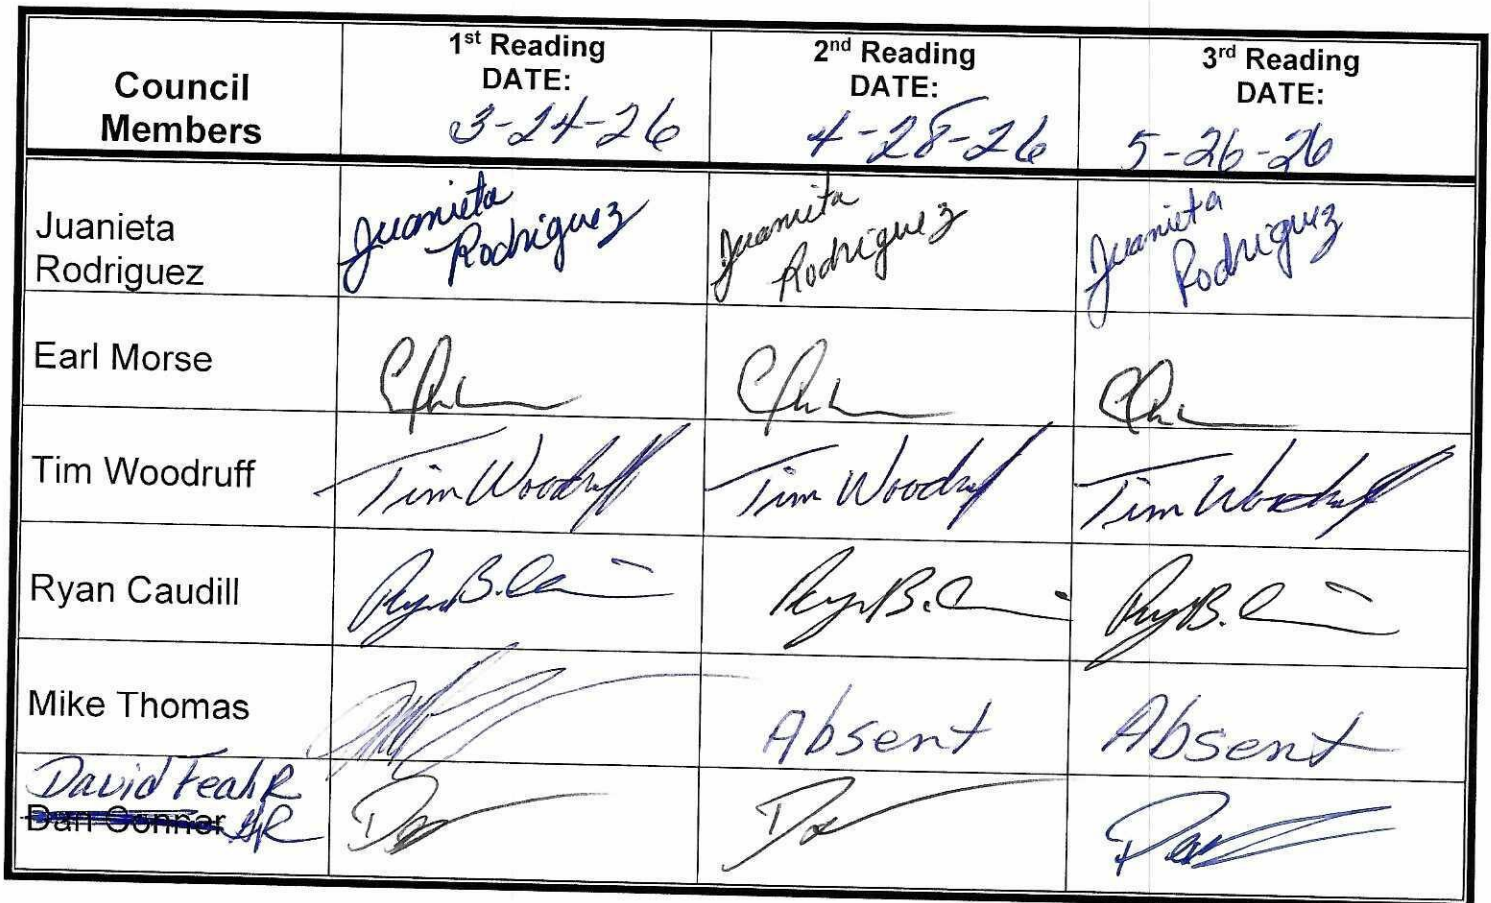 Council Members
1st Reading DATE: 3-24-26
2nd Reading DATE: 4-28-26
3rd Reading DATE: 5-26-26
Juanieta Rodriguez
Juanieta Rodriguez
Juanieta Rodriguez
Juanieta Rodriguez
Earl Morse
Tim Woodruff
Tim Woodruff
Tim Woodruff
Tim Woodruff
Ryan Caudill
Mike Thomas
Absent
Absent
David FeahR
Dan Conner